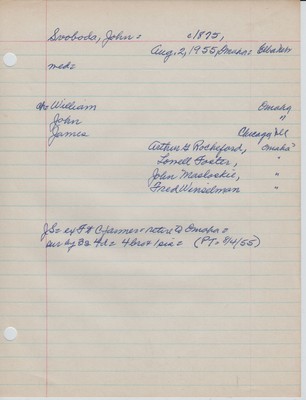 Svoboda, John = c/1875,
Aug. 2, 1955, Omaha =
med =
William Omaha
John "
James Chicago, Ill
Arthur G Rocheford, Omaha
Lowell Foster, "
John Masloskie, "
Fred Winselman "
JS = ex F# C farmer - retire to Omaha =
sur by 3s 4d = 4 bro = 1 sis = (PT = 8/4/55)